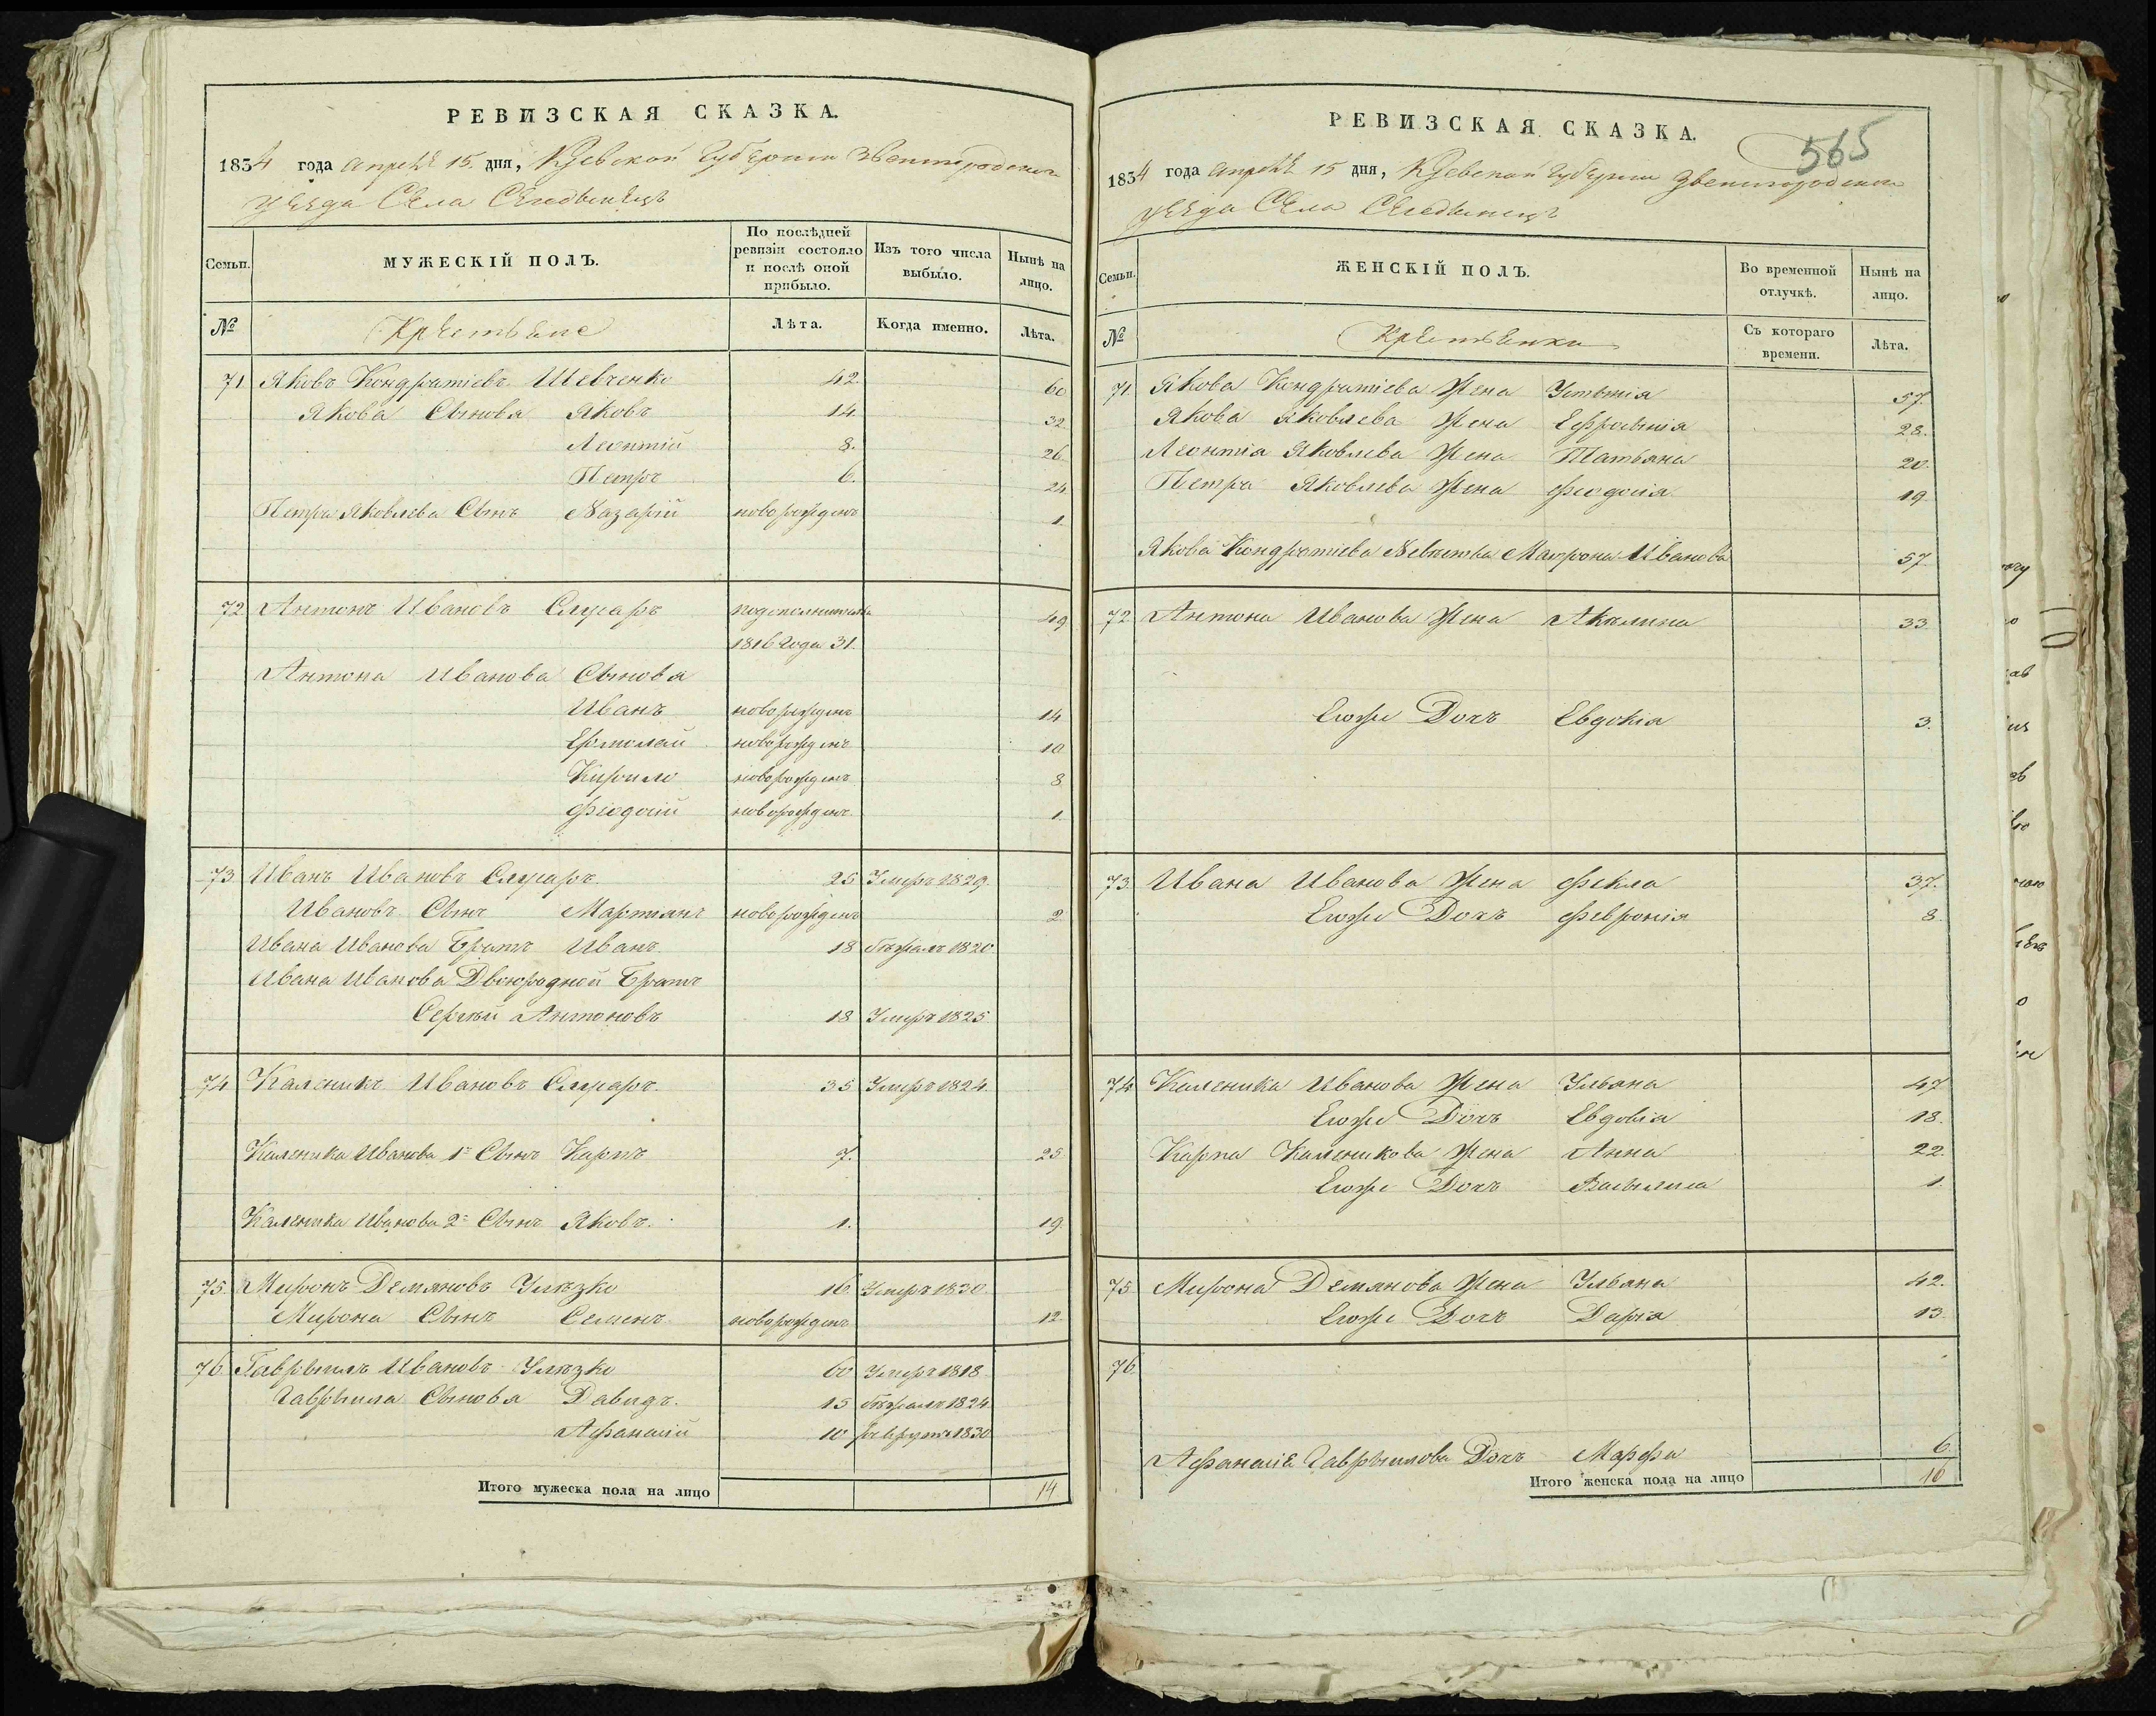 РЕВИЗСКАЯ СКАЗКА.
1834 года апреля 15. дня, Кіевской Губерніи Звенигородского
уезда Села
Семьи. МУЖЕСКІЙ ПОЛЪ. По послѣдней ревизіи состояло и послѣ оной прибыло. Изъ того числа выбыло. Нынѣ на лицо.
№ Крестьяне Лѣта. Когда именно. Лѣта.
71 Яковъ Кондратіевъ Шевченко 42. 60
Якова Сыновья Яковъ 14 32
Леонтій 8. 26
Петръ 6. 24
Петра Яковлева Сынъ Назарій новорожденъ 1.
72 Антонъ Ивановъ Слюсаръ 49
1816 Года 31.
Антона Иванова Сыновья
Иванъ новорожденъ 14
Ермолай новорожденъ 10
Кирило новорожденъ 8
Феодосій новорожденъ 1.
73 Иванъ Ивановъ Слюсаръ. 25 Умеръ 1829.
Ивановъ Сынъ Мартинъ новорожденъ 2
Ивана Иванова Братъ Иванъ 18 бежалъ 1820.
Ивана Иванова Двоюродной Братъ
Сергѣй Антоновъ 18 Умеръ 1825.
74 Каленикъ Ивановъ Слюсаръ. 35 Умеръ 1824.
Каленика Иванова 1й Сынъ Карпъ 7. 25
Каленика Иванова 2й Сынъ Яковъ. 1. 19.
75. Миронъ Демяновъ 16. Умеръ 1830.
Мирона Сынъ Семенъ новорожденъ 12
76 Гаврыилъ Ивановъ 60 Умеръ 1818.
Гаврыила Сыновья Давидъ. 15 бежалъ 1824.
Афанасій 10 рекрутъ 1830
Итого мужеска пола на лицо 14
РЕВИЗСКАЯ СКАЗКА.
565
1834 года апреля 15 дня, Кіевской Губерніи Звенигородского
уезда Села
Семьи. ЖЕНСКІЙ ПОЛЪ. Во временной отлучкѣ. Нынѣ на лицо.
№ Крестьянки Съ котораго времени. Лѣта.
71. Якова Кондратіева Жена 57.
Якова Яковлева Жена 28.
Леонтія Яковлева Жена Татьяна 20.
Петра Яковлева Жена Феодосія 19
Якова Кондратіева Невестка Матрона Иванова 57.
72. Антона Иванова Жена Акилина 33.
Егоже Дочь Евдокія 3.
73. Ивана Иванова Жена Фекла 37.
Егоже Дочь Февронія 8.
74 Каленика Иванова Жена Ульяна 47
Егоже Дочь Евдокія 18.
Карпа Каленикова Жена Анна 22.
Егоже Дочь 1.
75 Мирона Демянова Жена Ульяна 42.
Егоже Дочь Дарія 13.
76
Афанасія Гаврыилова Дочь Марфа 6.
Итого женска пола на лицо 16